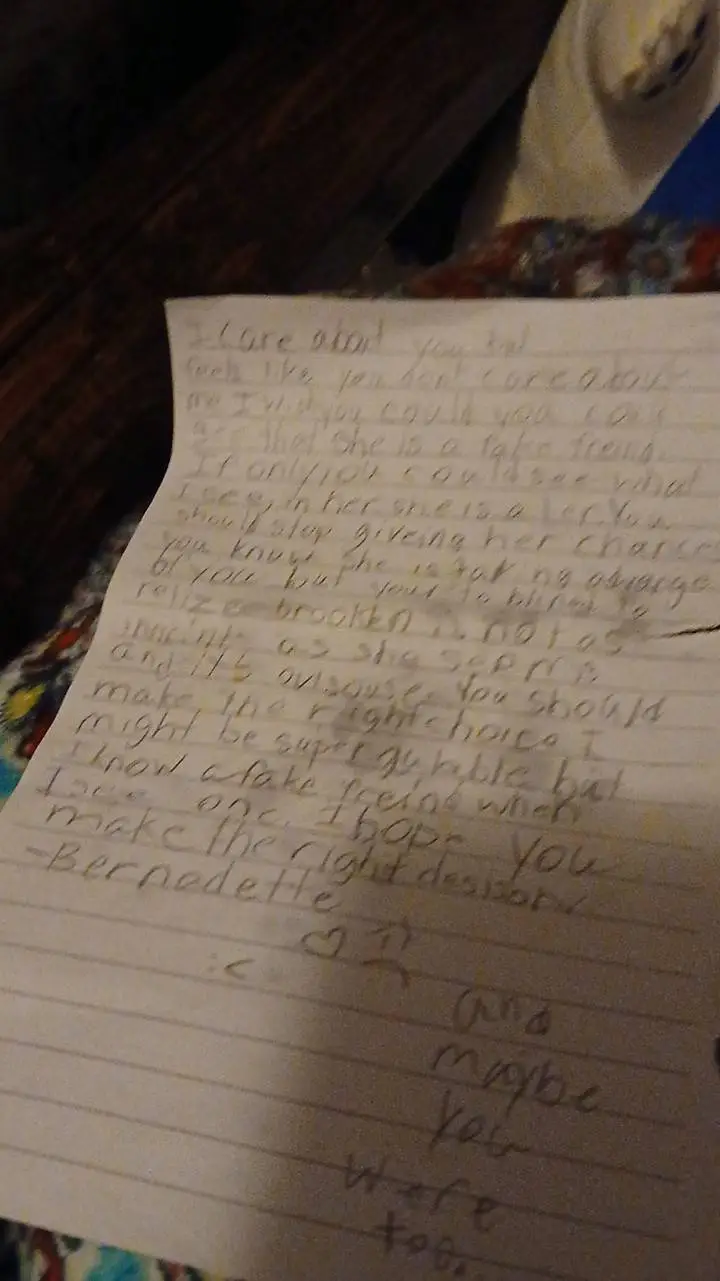 I care about you but
feels like you dont care about
me I wish you could you could
see that she is a fake freind.
If only you could see what
I see in her she is a
should stop giveing her chances
you know she is taking
of you but your to blind to
relize brookEn is not as
as she seems
and its You should
make the right choice I
might be super but
I know a fake freind when
I see one. I hope you
make the right desison
-Bernadette
♡ :)
:<
and
maybe
you
were
too.